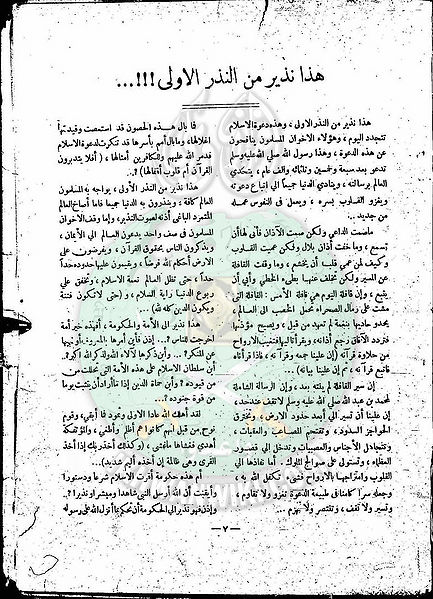 هذا نذير من النذر الاولى !!! ...
هذا نذير من النذر الاولى ، وهذه دعوة الاسلام
تتجدد اليوم ، وهؤلاء الاخوان المسلمون ينافحون
عن هذه الدعوة ، وهذا رسول الله صلى الله عليه وسلم
بعد سبعة وخمسين وثلثمائة والف عام ، يتحدى
العالم برسالته ، وينادى الدنيا جميعاً الى اتباع دعوته
ويغزو القلوب بسره ، ويعمل فى النفوس عمله
من جديد ..
ماصمت الداعى ولكن صمت الآذان فأنى لها أن
تسمع ، وما خفت أذان بلال ولكن عميت القلوب
وكيف لمن عمى قلبه أن يخشع ، وما وقفت القافلة
عن المسير ولكن تخلف عنها بطىء الخطى وأبى أن
يتبع ، وإن قافلة اليوم هى قافلة الأمس : القافلة التى
مشت على رمال الصحراء تحمل الخصب الى العالم ،
يحدو حاديها بنغمة لم تعهد من قبل ، ويصيح مؤذنها
فتردد الآفاق رجع أذانه ، ويقرأ نبيها فتغيب الارواح
من حلاوة قرآنه ( إن علينا جمعه وقرآنه ، فاذا قرأناه
فاتبع قرآنه ، ثم إن علينا بيانه ) ...
إن سير القافلة لم ينته بعد ، وإن الرسالة الشاملة
لمحمد بن عبد الله صلى الله عليه وسلم لا تقف عند حد ،
إن علينا أن نسير الى أبعد حدود الارض ، ونخترق
الحواجز السدود ، ونقتحم المصاعب والعقبات ،
ونتجاهل الأجناس والعصبيات وندخل الى قصور
العظماء ، ونستولى على صوالج الملوك . أما نفاذها الى
القلوب وامتزاجها بالارواح فشىء تكفل الله به ،
وجعله سراً كامناً فى طبيعة الدعوة تغزو ولا تقاوم ،
وتسير ولا تقف ، وتنتصر ولا تهزم ..
فما بال هذه الحصون قد استعصت وقيدتها
اغلالها ، وما بال أمم بأسرها قد تنكرت لدعوة الاسلام
فدمر الله عليهم وللكافرين أمثالها ، ( أفلا يتدبرون
القرآن أم على قلوب أقفالها ) ؟ ..
هذا نذير من النذر الأولى ، يواجه به المسلمون
العالم كافة ، وينذرون به الدنيا جميعا فاما أصاخ العالم
المتمرد الباغى أذنه لصوت النذير ، وإما وقف الاخوان
المسلمون فى صف واحد يدعون العالم الى الأيمان ،
ويذكرون الناس بحقوق القرآن ، ويفرضون على
الارض أحكام الله فرضاً ، ويقيمون عليها حدوده حداً
حداً ، حتى تظلل العالم نعمة الاسلام ، وتخفق على
ربوع الدنيا راية السلام ، و (حتى لاتكون فتنة
ويكون الدين كله لله) ...
هذا نذير الى الأمة والحكومة ، أفهذه خير أمة
اخرجت للناس ؟ .. إذن فأين أمرها بالمعروف أو نهيها
عن المنكر ؟ .. وأين ذكرها لآلاء الله ولذكر الله اكبر ؟
أين سلطان الاسلام على هذه الأمة التى تخلت من
من قيوده ؟ وأين حماة الدين إذا نادى القرآن يثبت بوما
من قوة جنوده ؟ ..
لقد أهلك الله عادا الاولى وثمود فما أبقى ، وقوم
نوح من قبل انهم كانوا هم أظلم وأطغى ، والمؤتفكة
أهوى فغشاها ما غشى ، ( وكذلك أخذ ربك إذا أخذ
القرى وهى ظالمة إن أخذه أليم شديد ) ...
أم هذه حكومة أقرت الاسلام شرعا ودستورا
وأيقنت أن الله أرسل النبى شاهدا ومبشرا ونذيرا ؟ ..
وإذن فهو نذير الى الحكومة أن تحكم بما أنزل الله على رسوله
— ٧ —